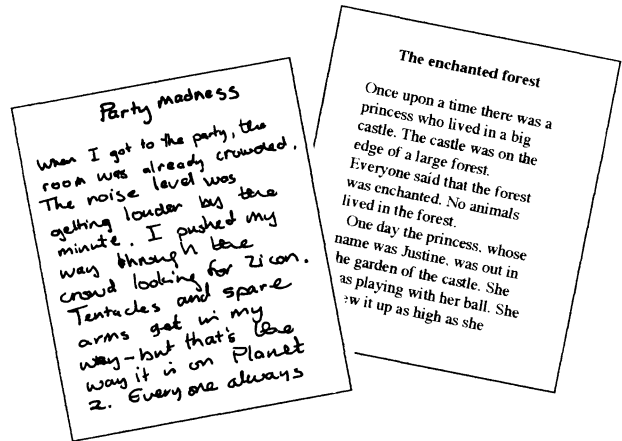 Party madness
When I got to the party, the
room was already crowded.
The noise level was
getting louder by the
minute. I pushed my
way through the
crowd looking for Zicon.
Tentacles and spare
arms get in my
way - but that's the
way it is on Planet
2. Everyone always
The enchanted forest
Once upon a time there was a
princess who lived in a big
castle. The castle was on the
edge of a large forest.
Everyone said that the forest
was enchanted. No animals
lived in the forest.
One day the princess, whose
name was Justine, was out in
he garden of the castle. She
as playing with her ball. She
ew it up as high as she